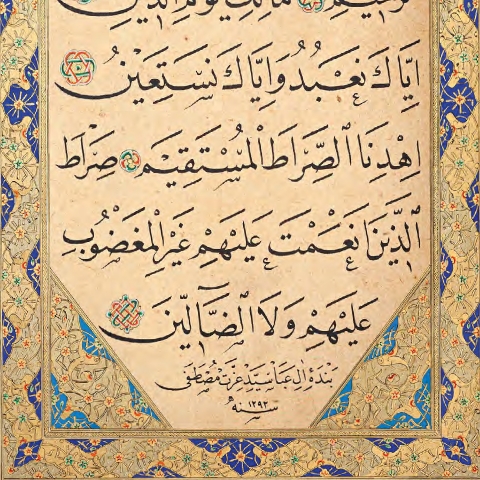 الرَّحِيمِ مَالِكِ يَوْمِ الدِّينِ
اِيَّاكَ نَعْبُدُ وَاِيَّاكَ نَسْتَعِينُ
اِهْدِنَا الصِّرَاطَ الْمُسْتَقِيمَ صِرَاطَ
الَّذِينَ اَنْعَمْتَ عَلَيْهِمْ غَيْرِ الْمَغْضُوبِ
عَلَيْهِمْ وَلَا الضَّآلِّينَ
بنده آل عبا سيد عزت مصطفى
سنه ١٢٩٣